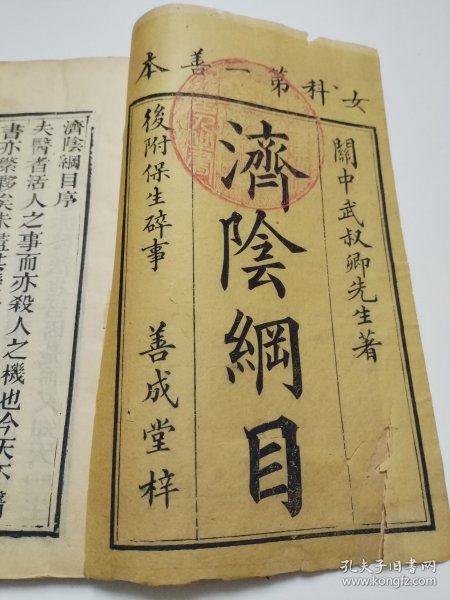 女科第一善本
關中武叔卿先生著
濟陰綱目
後附保生碎事
善成堂梓
濟陰綱目序
夫醫者活人之事而亦殺人之機也今天下醫
書亦繁夥矣未
孔夫子旧书网
www.kongfz.com